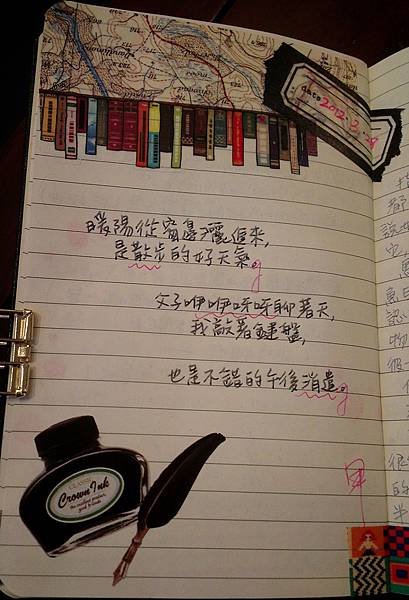 date 2012. 3.
暖陽從窗邊灑進來,
是散步的好天氣。
父子咿咿呀呀聊著天,
我敲著鍵盤,
也是不錯的午後消遣。
Crown Ink
都
很
的
半